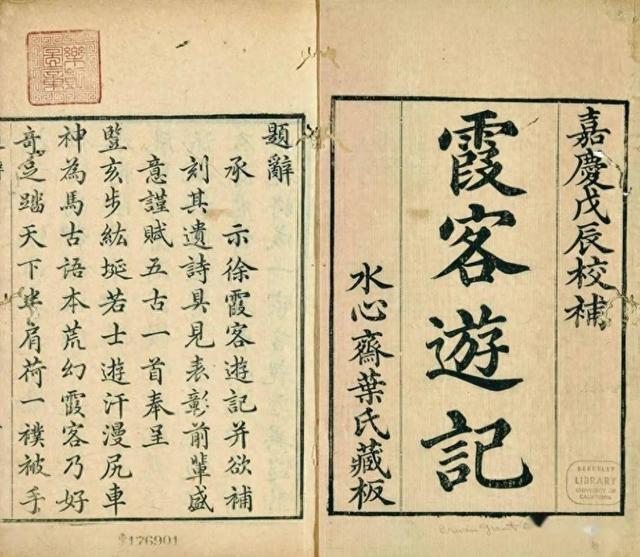 嘉慶戊辰校補
霞客遊記
水心齋葉氏藏板
BERKELEY
LIBRARY
UNIVERSITY OF
CALIFORNIA
題辭
承 示徐霞客遊記并欲補
刻其遺詩具見表彰前輩盛
意謹賦五古一首奉呈
豎亥步紘埏若士遊汗漫尻車
神為馬古語本荒幻霞客乃好
奇足踏天下半肩荷一襆被手
176901